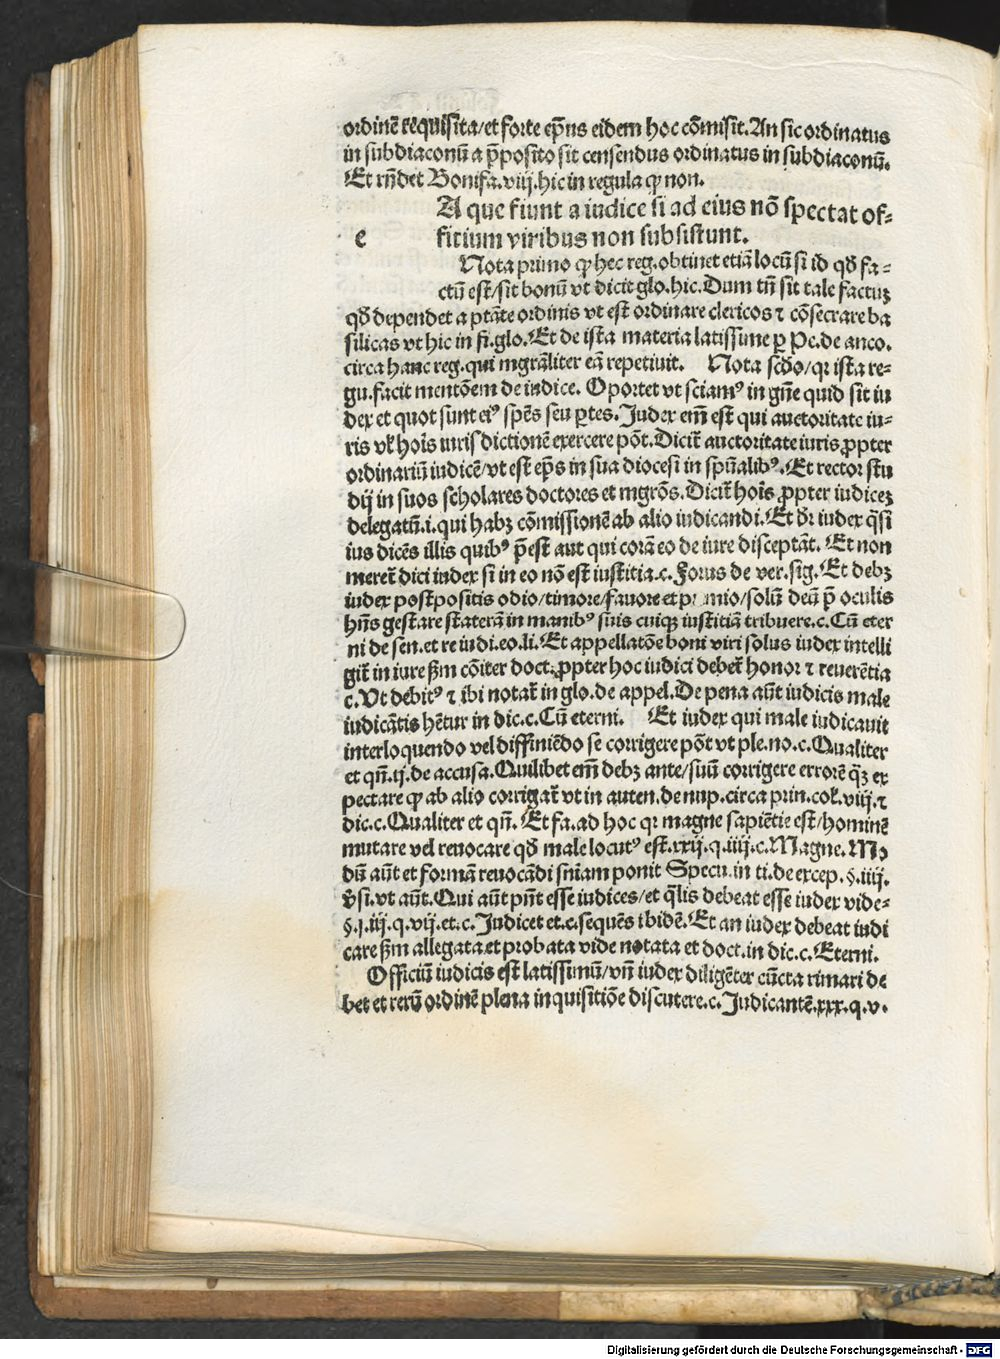 ordinē requisita/et forte ep̄us eidem hoc cōmisit. An sic ordinatus
in subdiaconū a p̄posito sit censendus ordinatus in subdiaconū.
Et rn̄det Bonifa. viij. hic in regula ꝙ non.
A que fiunt a iudice si ad eius nō spectat of-
e ficium viribus non subsistunt.
Nota primo ꝙ hec reg. obtinet etiā locū si id qd̄ fa-
ctū est/sit bonū vt dicit glo. hic. Dum tn̄ sit tale factuꝫ
qd̄ dependet a ptāte ordinis vt est ordinare clericos ⁊ cōsecrare ba
silicas vt hic in fi. glo. Et de ista materia latissime ꝑ Pe. de anco.
circa hanc reg. qui mgrāliter eā repetiuit. Nota scd̄o/qꝛ ista re-
gu. facit mentōem de iudice. Oportet vt sciamꝰ in gn̄e quid sit iu
dex et quot sunt eiꝰ spēs seu ꝑtes. Judex em̄ est qui auctoritate iu-
ris vl̓ hoīs iurisdictionē exercere pōt. Dicit̄ auctoritate iuris ꝓpter
ordinariū iudicē/vt est ep̄s in sua diocesi in spūalibꝰ. Et rector stu
dij in suos scholares doctores et mgrōs. Dicit̄ hoīs ꝓpter iudiceꝫ
delegatū .i. qui habꝫ cōmissionē ab alio iudicandi. Et dr̄ iudex q̄si
ius dicēs illis quibꝰ p̄est aut qui corā eo de iure disceptāt. Et non
meret̄ dici iudex si in eo nō est iustitia. c. Forus de ver. sig. Et debꝫ
iudex postpositis odio/timore/fauore et pmio/solū deū p̄ oculis
hn̄s gestare staterā in manibꝰ suis cuiqꝫ iustitiā tribuere. c. Cū eter
ni de sen. et re iudi. eo. li. Et appellatōe boni viri solus iudex intelli
git̄ in iure ẜm cōiter doct. ꝓpter hoc iudici debet̄ honor ⁊ reuerētia
c. Vt debitꝰ ⁊ ibi notat̄ in glo. de appel. De pena aūt iudicis male
iudicātis hētur in dic. c. Cū eterni. Et iudex qui male iudicauit
interloquendo vel diffiniēdo se corrigere pōt vt ple. no. c. Qualiter
et qn̄. ij. de accusa. Quilibet em̄ debꝫ ante/suū corrigere errorē q̄ꝫ ex
pectare ꝙ ab alio corrigat̄ vt in auten. de nup. circa prin. col̓. viij. ⁊
dic. c. Qualiter et qn̄. Et fa. ad hoc qꝛ magne sapiētie est/hominē
mutare vel reuocare qd̄ male locutꝰ est. xxij. q. iiij. c. Magne. Mo
dū aūt et formā reuocādi sniam ponit Specu. in ti. de excep. §. iiij.
v̄si. vt aūt. Qui aūt pn̄t esse iudices/et q̄lis debeat esse iudex vide-
§. j. iij. q. vij. et. c. Judicet et. c. sequēs ibidē. Et an iudex debeat iudi
care ẜm allegata et probata vide notata et doct. in dic. c. Eterni.
Officiū iudicis est latissimū/vn̄ iudex diligēter cūcta rimari de
bet et rerū ordinē plena inquisitiōe discutere. c. Judicantē. xxx. q. v.
Digitalisierung gefördert durch die Deutsche Forschungsgemeinschaft - DFG